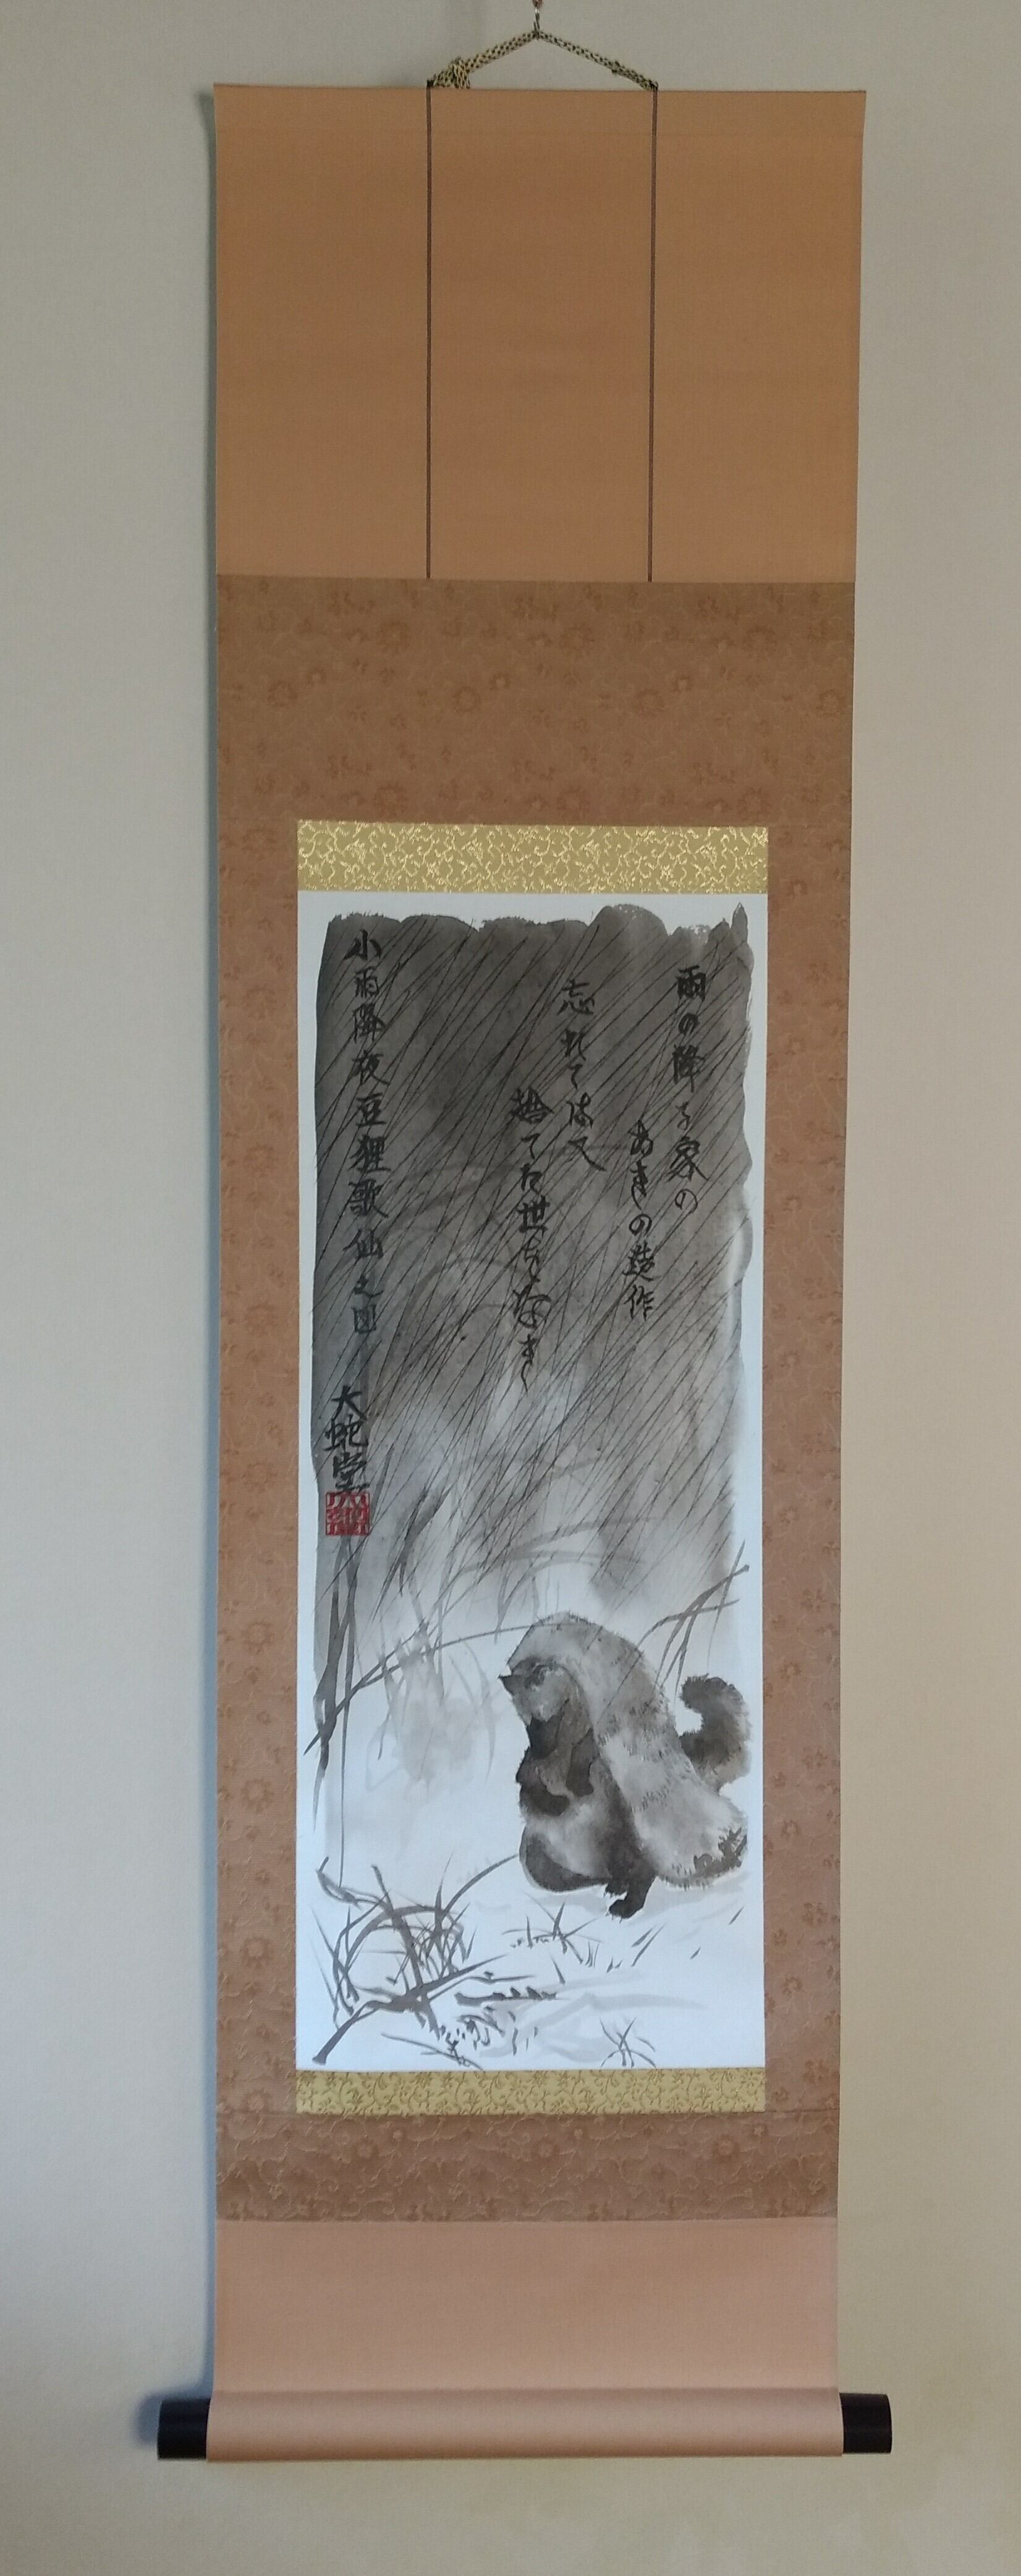 雨の降る家の
あきの造作
忘れては又
捨てた世をなき
小雨降夜豆狸歌仙之図
大蛇堂